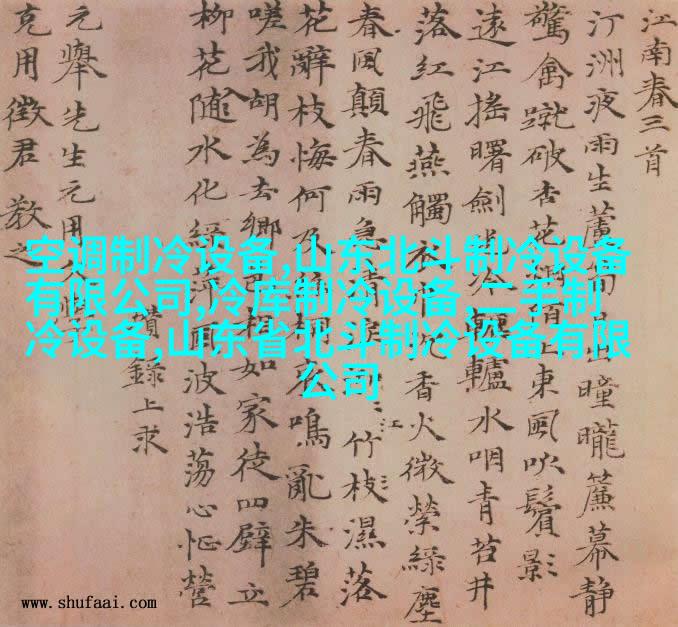 江南春三首
汀洲夜雨生蘆筍日出曈曨簾幕靜
驚禽蹴破杏花 陌上東風吹鬢影
遠江搖曙劍 水 轆轤水咽青苔井
落紅飛燕觸衣巾沉香火微縈綠塵
春風顛春雨急清淚 江竹枝濕落
花辭枝悔何及絲桐哀鳴亂朱碧
嗟我胡為去鄉邑相如家徒四壁立
柳花隨水化綠萍風波浩蕩心怔營
瓚錄上求
元舉先生元用文學
克用徵君教之
空调制冷设备,山东北斗制冷设备
有限公司,冷库制冷设备,二手制
冷设备,山东省北斗制冷设备有限
公司
www.shufaai.com